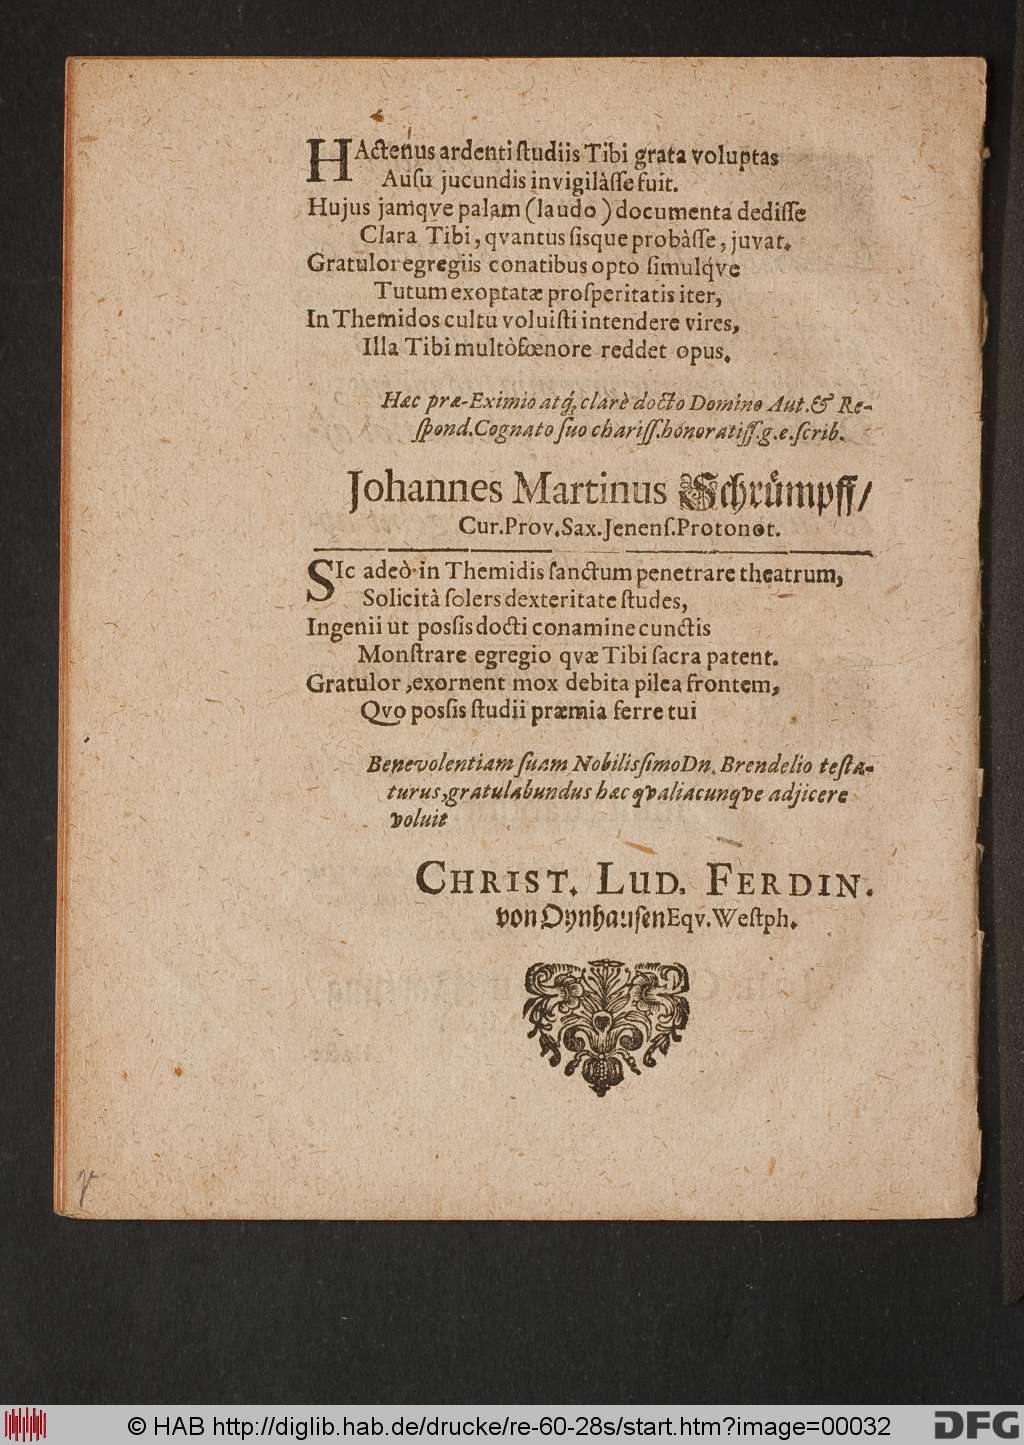 HActenus ardenti ſtudiis Tibi grata voluptas
Auſu jucundis invigilàſſe fuit.
Hujus jamqve palam (laudo) documenta dediſſe
Clara Tibi, qvantus ſisque probàſſe, juvat.
Gratulor egregiis conatibus opto ſimulq́ve
Tutum exoptatæ proſperitatis iter,
In Themidos cultu voluiſti intendere vires,
Illa Tibi multò fœnore reddet opus.
Hæc præ-Eximio atq́; clarè docto Domino Aut. & Re-
ſpond. Cognato ſuo chariſſ. honoratiſſ. g. e. ſcrib.
Johannes Martinus Schrümpff/
Cur. Prov. Sax. Jenenſ. Protonot.
SIc adeò in Themidis ſanctum penetrare theatrum,
Solicità ſolers dexteritate ſtudes,
Ingenii ut poſſis docti conamine cunctis
Monſtrare egregio qvæ Tibi ſacra patent.
Gratulor, exornent mox debita pilea frontem,
Qvo poſſis ſtudii præmia ferre tui
Benevolentiam ſuam Nobiliſſimo Dn. Brendelio teſta-
turus, gratulabundus hæc qvaliacunqve adjicere
voluit
CHRIST. LUD. FERDIN.
von Oynhauſen Eqv. Weſtph.
© HAB http://diglib.hab.de/drucke/re-60-28s/start.htm?image=00032
DFG